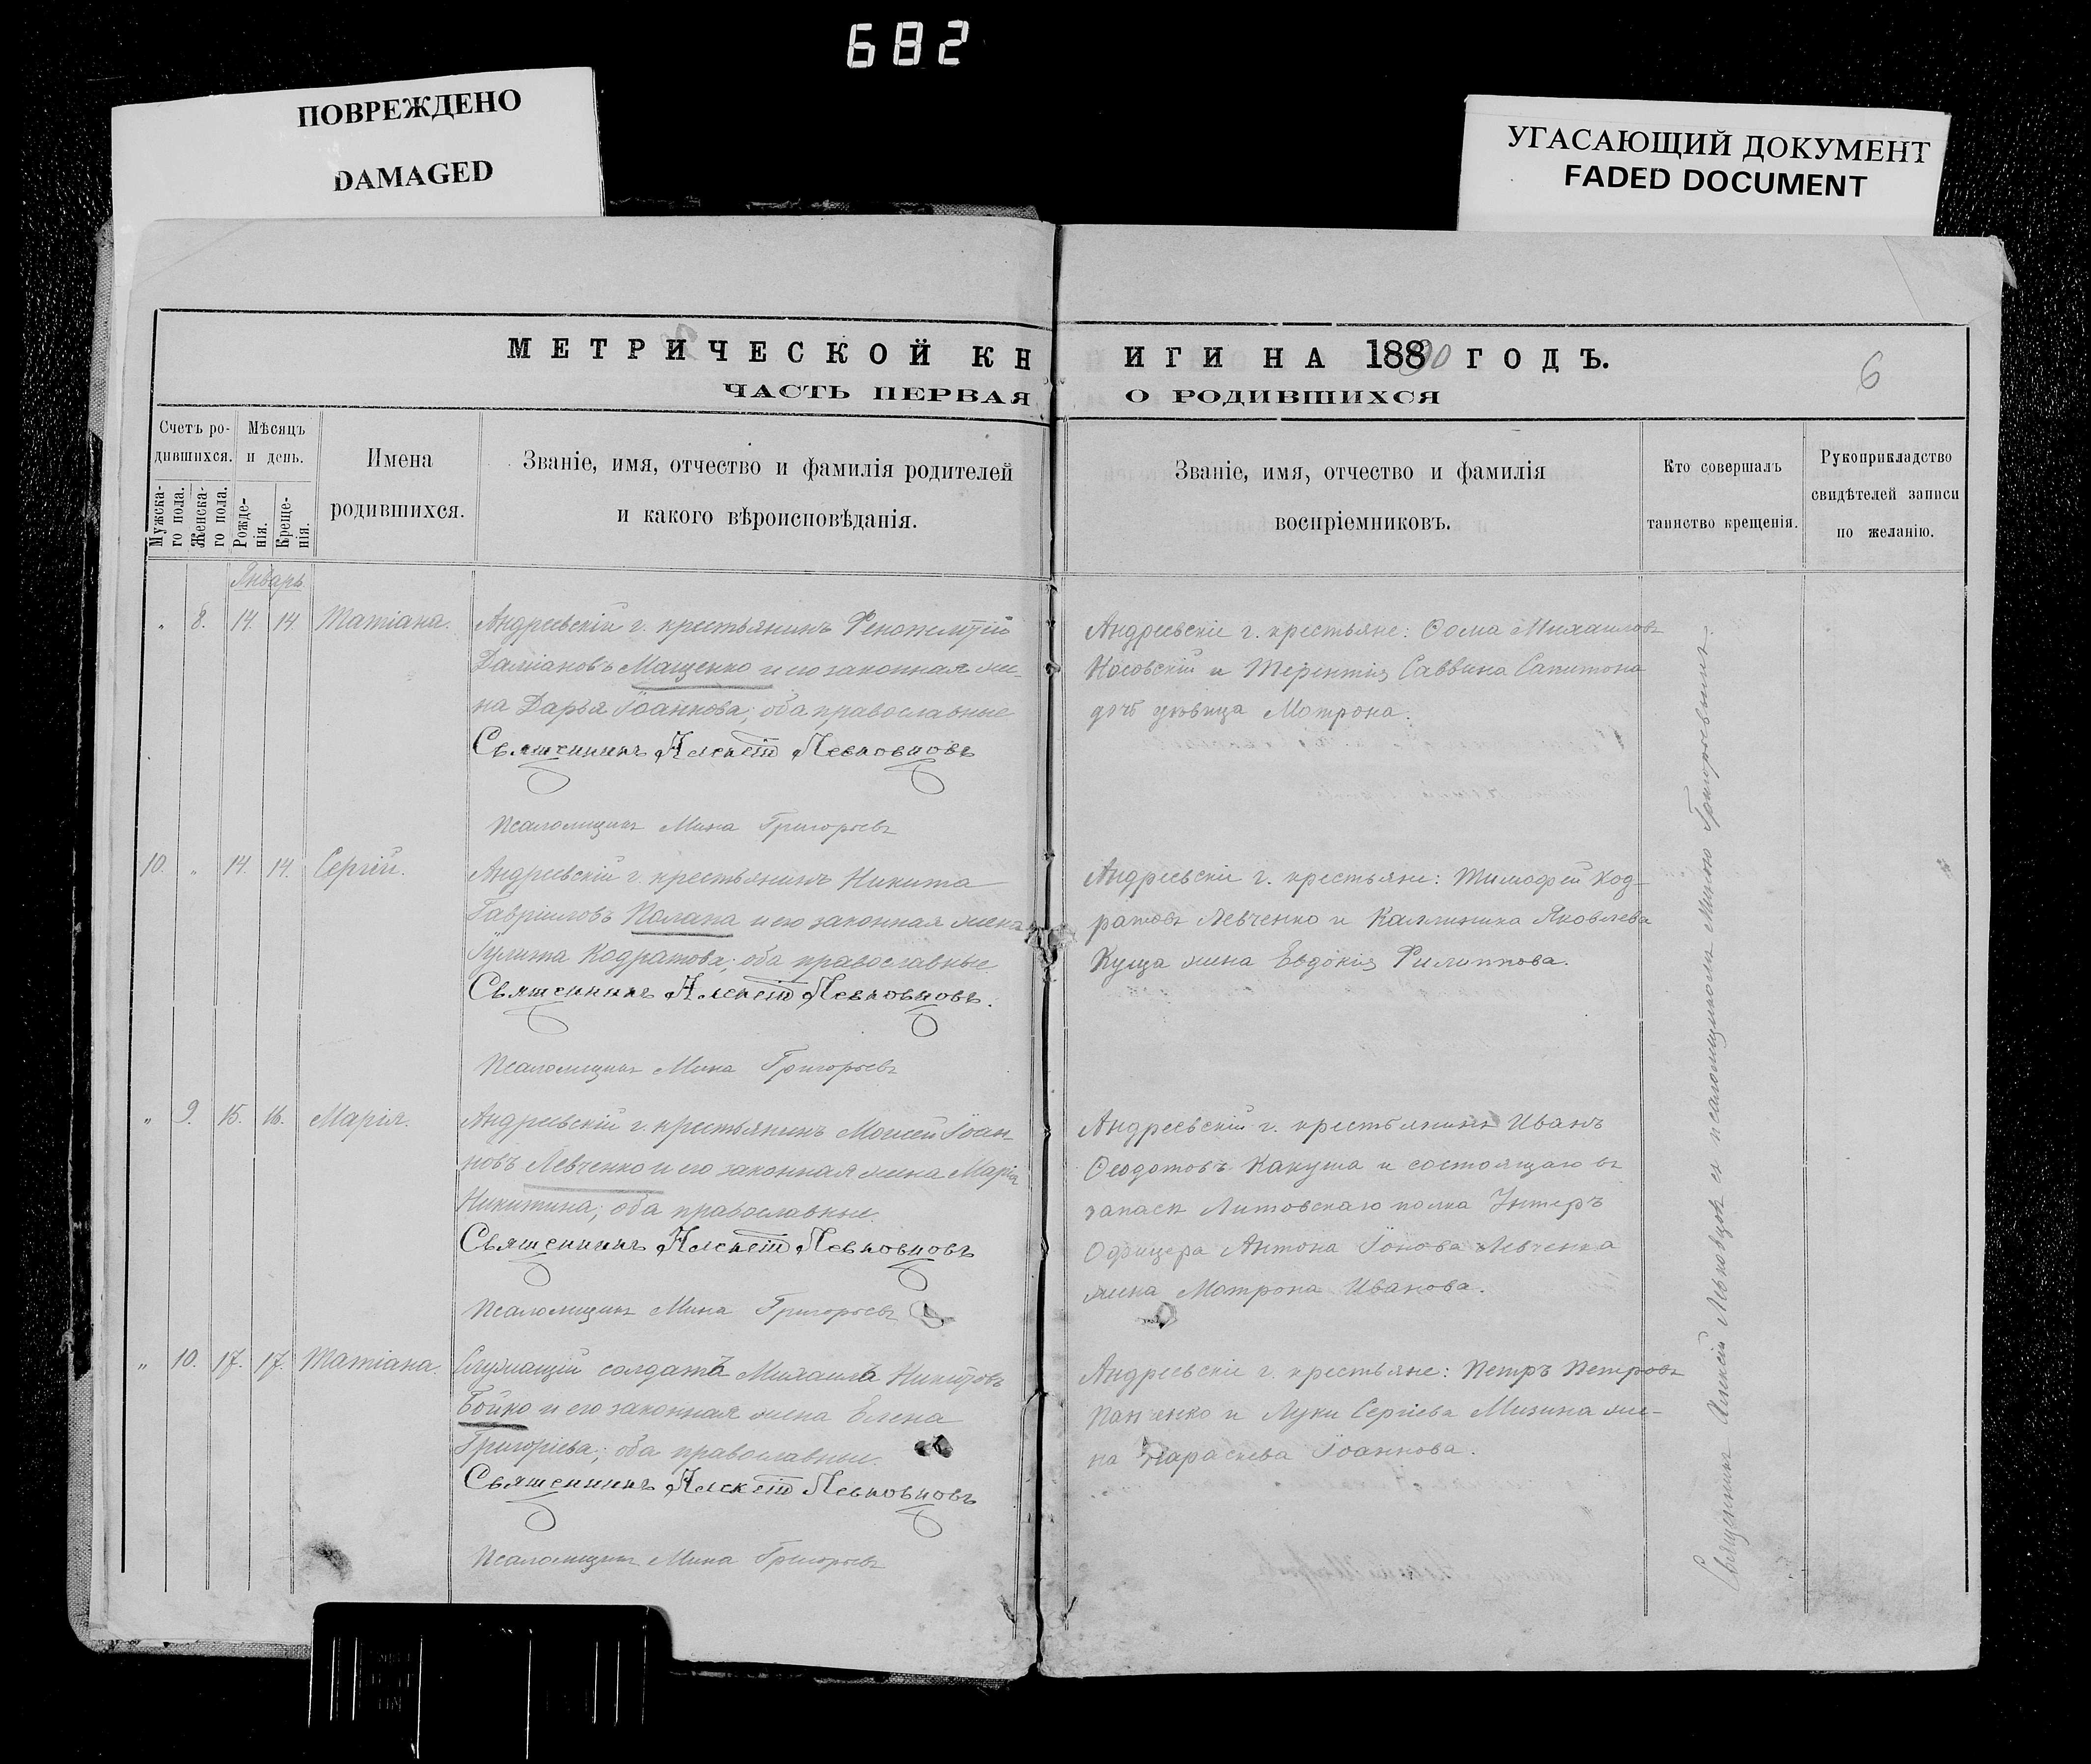 682
ПОВРЕЖДЕНО
DAMAGED
УГАСАЮЩИЙ ДОКУМЕНТ
FADED DOCUMENT
МЕТРИЧЕСКОЙ КНИГИ НА 1890 ГОДЪ.
6
ЧАСТЬ ПЕРВАЯ О РОДИВШИХСЯ
Счетъ ро-
дившихся.
Мужска-
го пола.
Женска-
го пола.
Мѣсяцъ
и день.
Рожде-
нія.
Креще-
нія.
Имена
родившихся.
Званіе, имя, отчество и фамилія родителей
и какого вѣроисповѣданія.
Званіе, имя, отчество и фамилія
воспріемниковъ.
Кто совершалъ
таинство крещенія.
Рукоприкладство
свидѣтелей записи
по желанію.
Январь
" 8. 14. 14. Татіана.
Андреевскій г. крестьянинъ
Даміановъ Мащенко и его законная же-
на Дарья Іоаннова; оба православные
Священникъ Алексій Левковцовъ
Псаломщикъ Мина Григорьевъ
Андреевскіе г. крестьяне: Ѳома Михаиловъ
Носовскій и Терентія Саввина Сапитона
дочь вдовица Мотрона.
10. " 14. 14. Сергій.
Андреевскій г. крестьянинъ Никита
Гавріиловъ Палапа и его законная жена
Іулита Кодратова; оба православные.
Священникъ Алексій Левковцовъ.
Псаломщикъ Мина Григорьевъ
Андреевскіе г. крестьяне: Тимофей Код-
ратовъ Левченко и Каллиника Яковлева
Куща жена Евдокія Филиппова.
" 9. 15. 16. Марія.
Андреевскій г. крестьянинъ Моисей Іоан-
новъ Левченко и его законная жена Марія
Никитина; оба православные.
Священникъ Алексій Левковцовъ
Псаломщикъ Мина Григорьевъ
Андреевскій г. крестьянинъ Иванъ
Ѳеодотовъ Какуша и состоящаго въ
запасѣ Литовскаго полка Унтеръ
Офицера Антона Іонова Левченка
жена Мотрона Иванова.
" 10. 17. 17. Татіана.
Служащій солдатъ Михаилъ Никитовъ
Бойко и его законная жена Елена
Григоріева; оба православные.
Священникъ Алексій Левковцовъ
Псаломщикъ Мина Григорьевъ
Андреевскіе г. крестьяне: Петръ Петровъ
Панченко и Луки Сергіева Мизина же-
на Параскева Іоаннова.
Священникъ Алексій Левковцовъ съ псаломщикомъ Миною Григорьевымъ.